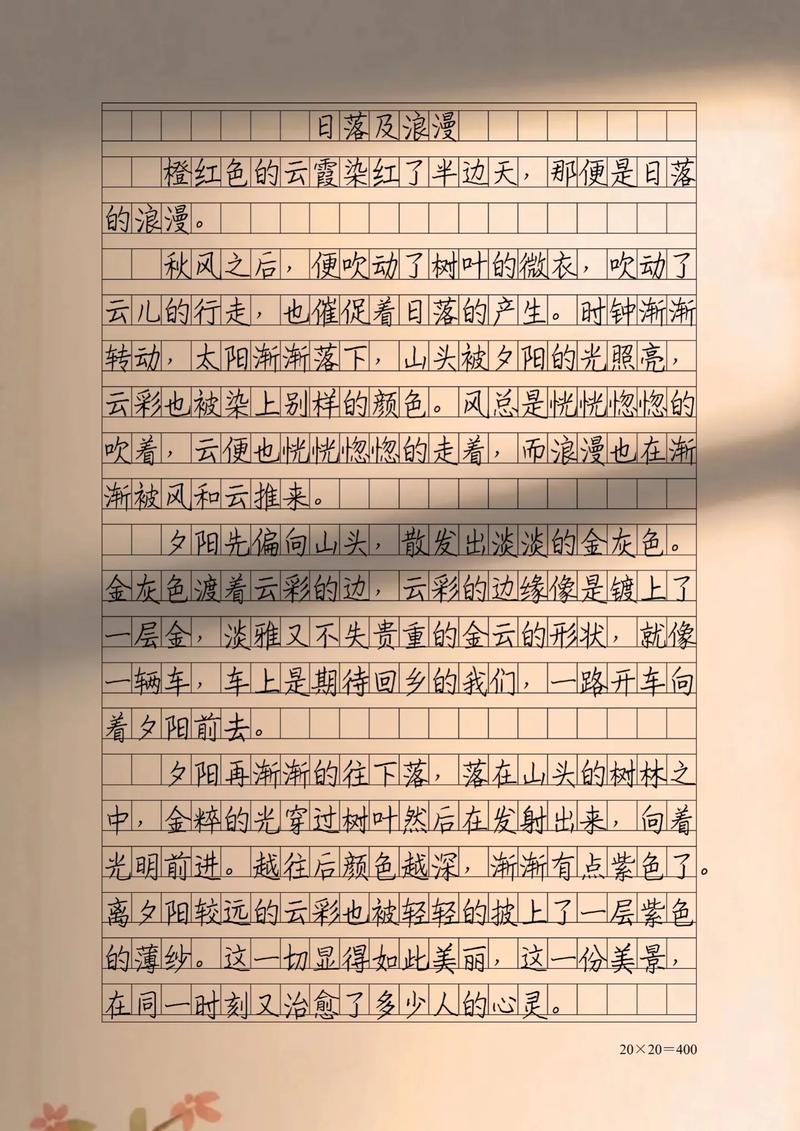 日落及浪漫
橙红色的云霞染红了半边天，那便是日落
的浪漫。
秋风之后，便吹动了树叶的微衣，吹动了
云儿的行走，也催促着日落的产生。时钟渐渐
转动，太阳渐渐落下，山头被夕阳的光照亮，
云彩也被染上别样的颜色。风总是恍恍惚惚的
吹着，云便也恍恍惚惚的走着，而浪漫也在渐
渐被风和云推来。
夕阳先偏向山头，散发出淡淡的金灰色。
金灰色渡着云彩的边，云彩的边缘像是镀上了
一层金，淡雅又不失贵重的金云的形状，就像
一辆车，车上是期待回乡的我们，一路开车向
着夕阳前去。
夕阳再渐渐的往下落，落在山头的树林之
中，金粹的光穿过树叶然后在发射出来，向着
光明前进。越往后颜色越深，渐渐有点紫色了。
离夕阳较远的云彩也被轻轻的披上了一层紫色
的薄纱。这一切显得如此美丽，这一份美景，
在同一时刻又治愈了多少人的心灵。
20×20=400